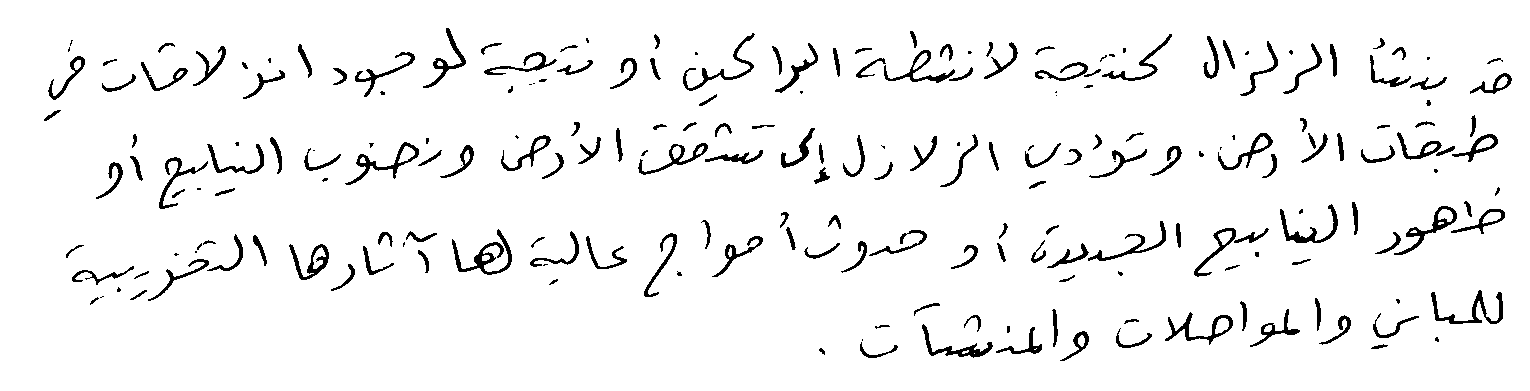 قد ينشأ الزلزال كنتيجة لأنشطة البراكين أو نتيجة لوجود انزلاقات في
طبقات الأرض. وتؤدي الزلازل إلى تشقق الأرض ونضوب الينابيع أو
ظهور الينابيع الجديدة أو حدوث أمواج عالية لها آثارها التخريبية
للمباني والمواصلات والمنشآت.